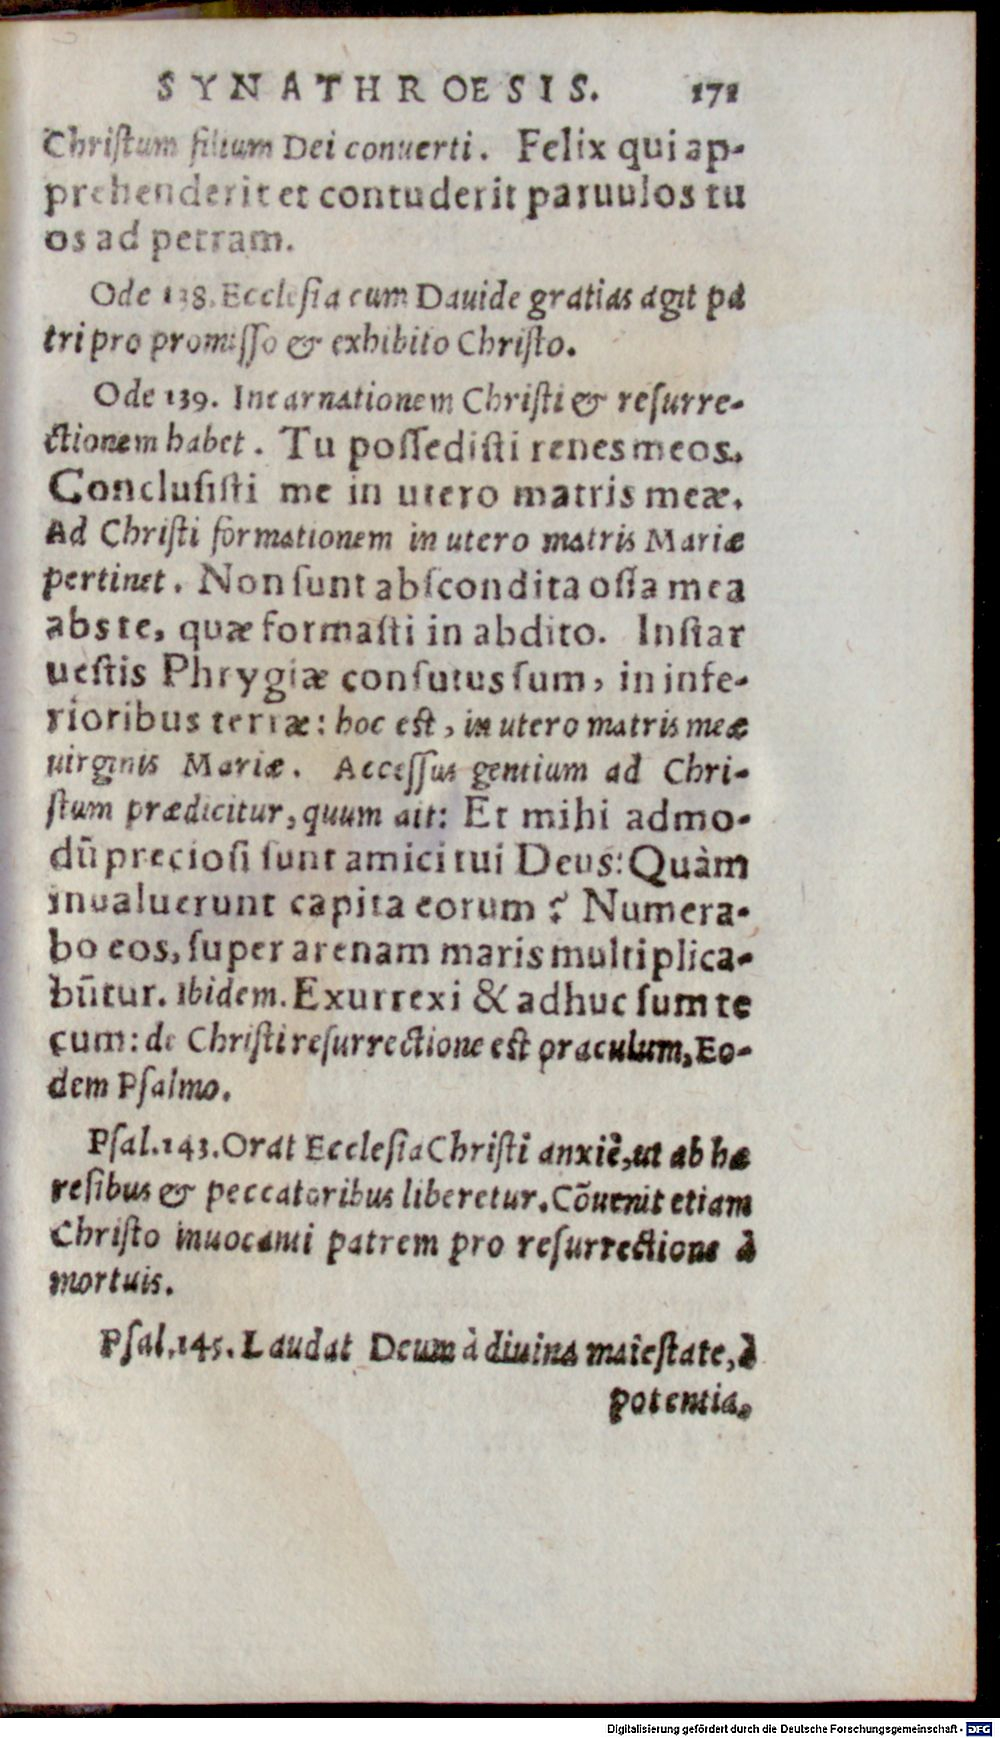 SYNATHROESIS. 171
Christum filium Dei conuerti. Felix qui ap-
prehenderit et contuderit paruulos tu
os ad petram.
Ode 138. Ecclesia cum Dauide gratias agit pa
tri pro promisso & exhibito Christo.
Ode 139. Incarnationem Christi & resurre-
ctionem habet. Tu possedisti renes meos.
Conclusisti me in utero matris meæ.
Ad Christi formationem in utero matris Mariæ
pertinet. Non sunt abscondita ossa mea
abs te, quæ formasti in abdito. Instar
uestis Phrygiæ consutus sum, in infe-
rioribus terræ: hoc est, in utero matris meæ
uirginis Mariæ. Accessus gentium ad Chri-
stum prædicitur, quum ait: Et mihi admo-
dū preciosi sunt amici tui Deus: Quàm
inualuerunt capita eorum? Numera-
bo eos, super arenam maris multiplica-
būtur. Ibidem. Exurrexi & adhuc sum te
cum: de Christi resurrectione est oraculum, Eo-
dem Psalmo.
Psal. 143. Orat Ecclesia Christi anxiè, ut ab hæ
resibus & peccatoribus liberetur. Cōuenit etiam
Christo inuocanti patrem pro resurrectione à
mortuis.
Psal. 145. Laudat Deum à diuina maiestate, à
potentia,
Digitalisierung gefördert durch die Deutsche Forschungsgemeinschaft - DFG